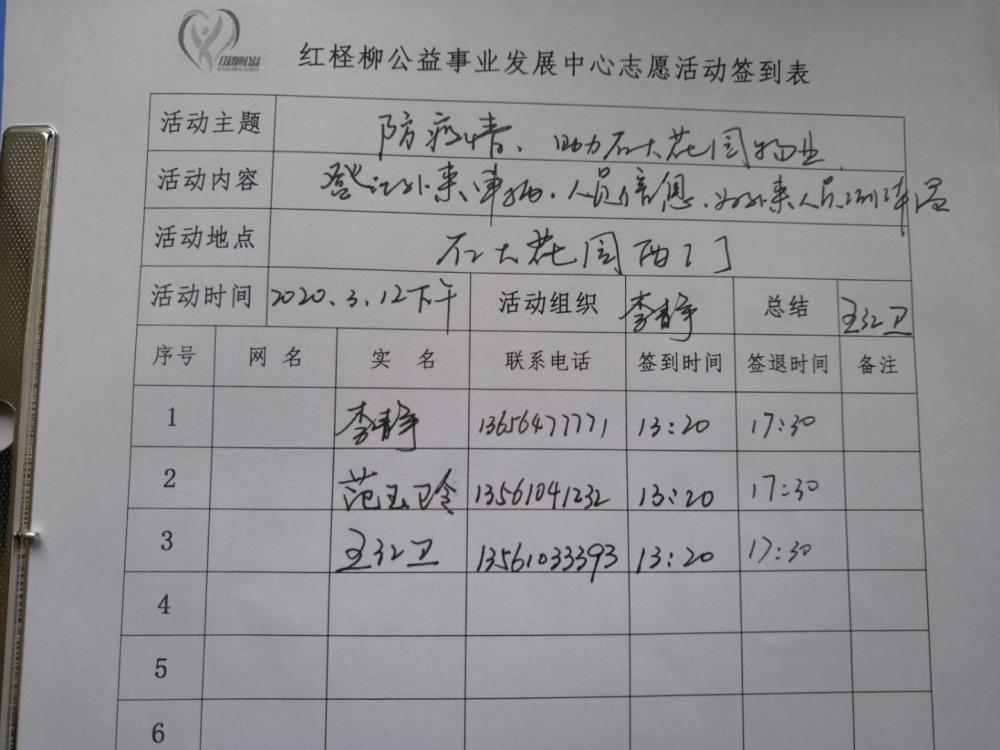 红柽柳公益事业发展中心志愿活动签到表
活动主题 防疫情、助力石大花园物业
活动内容 登记外来车辆、人员信息、为外来人员测体温
活动地点 石大花园西门
活动时间 2020.3.12下午 活动组织 李静 总结 王红卫
序号 网名 实名 联系电话 签到时间 签退时间 备注
1 李静 13656477771 13:20 17:30
2 范玉玲 13561041232 13:20 17:30
3 王红卫 13561033393 13:20 17:30
4
5
6